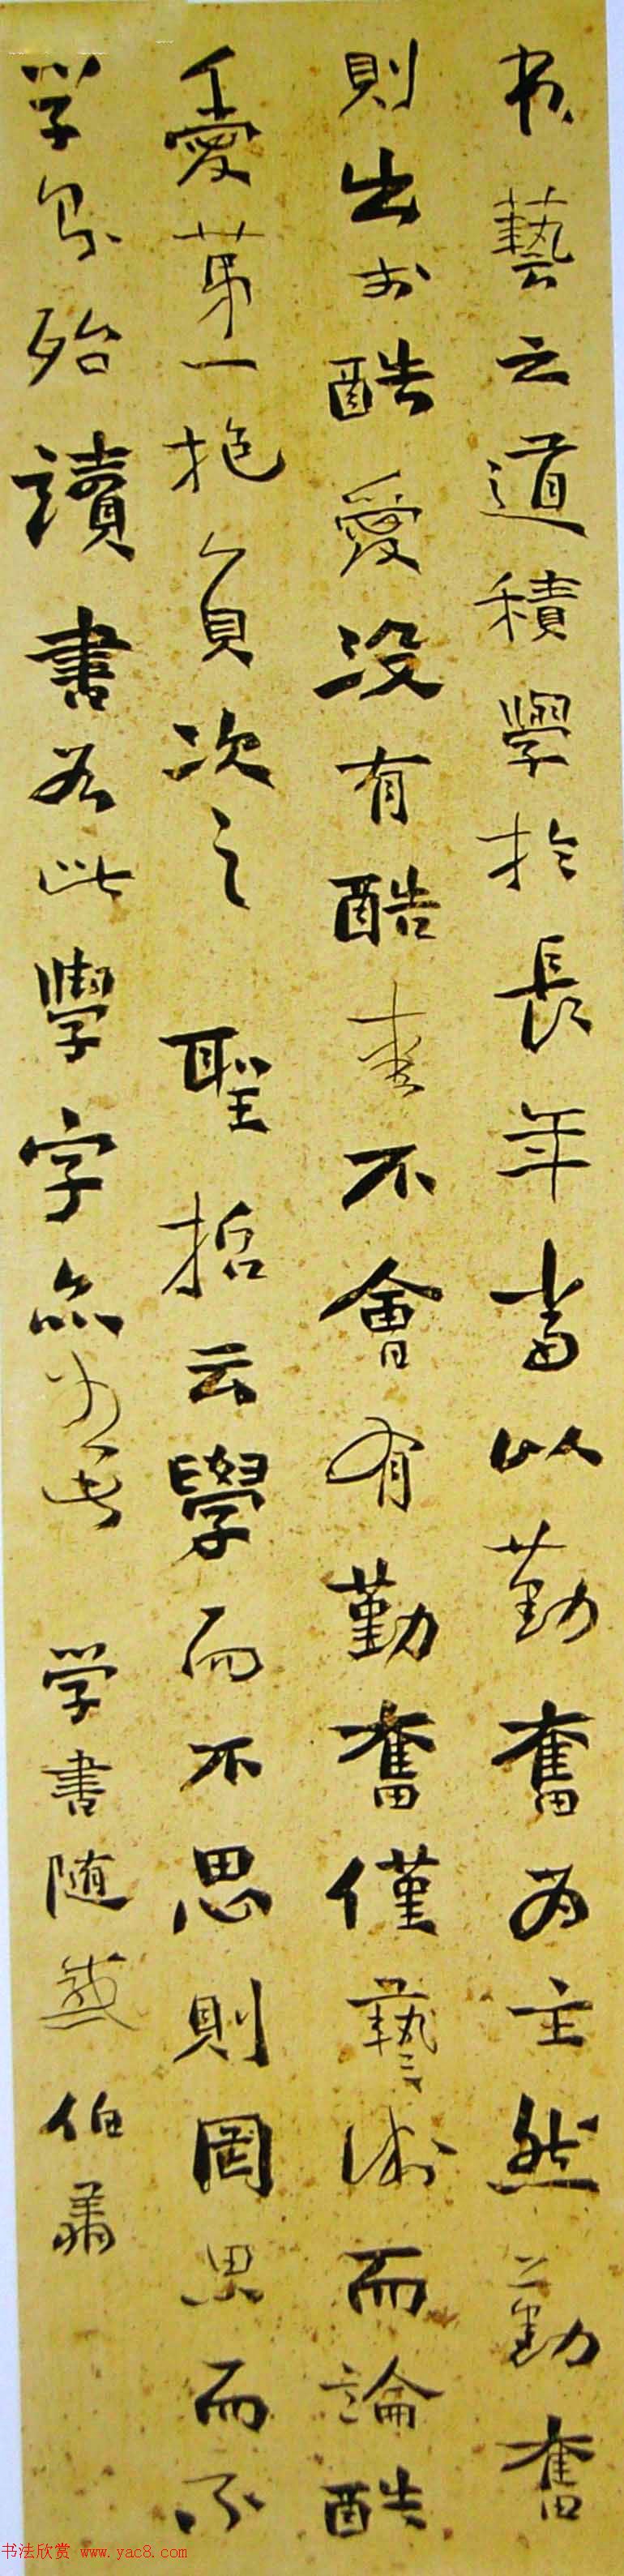 书藝之道積學於長年當以勤奮为主然勤奮
則出於酷愛没有酷愛不會有勤奮僅藝術而論酷
愛第一抱負次之聖哲云學而不思則罔思而不
学則殆讀書如此學字亦如是学書随感伯肅
书法欣赏 www.yac8.com